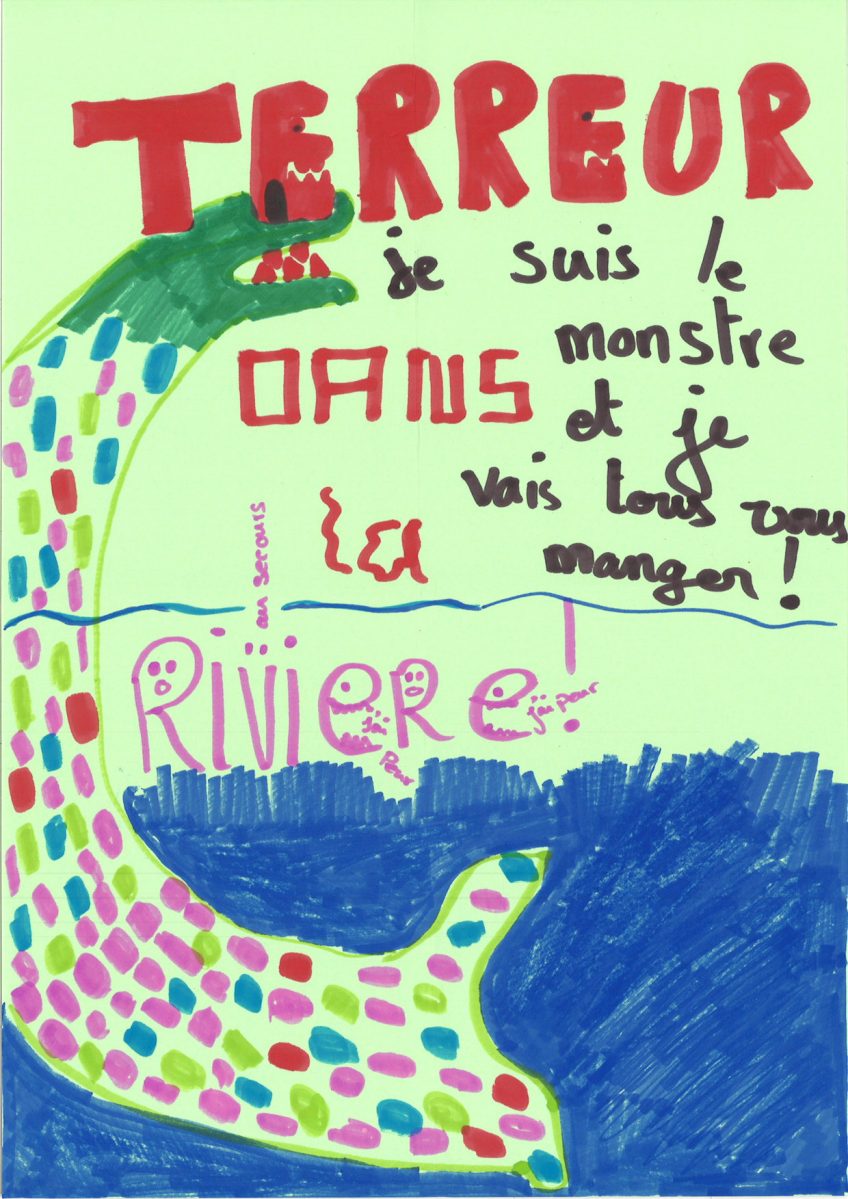 TERREUR
je suis le
monstre
DANS
et je
vais tous vous
manger !
la
au secours
RivièRe !
j'ai
peur
j'ai peur